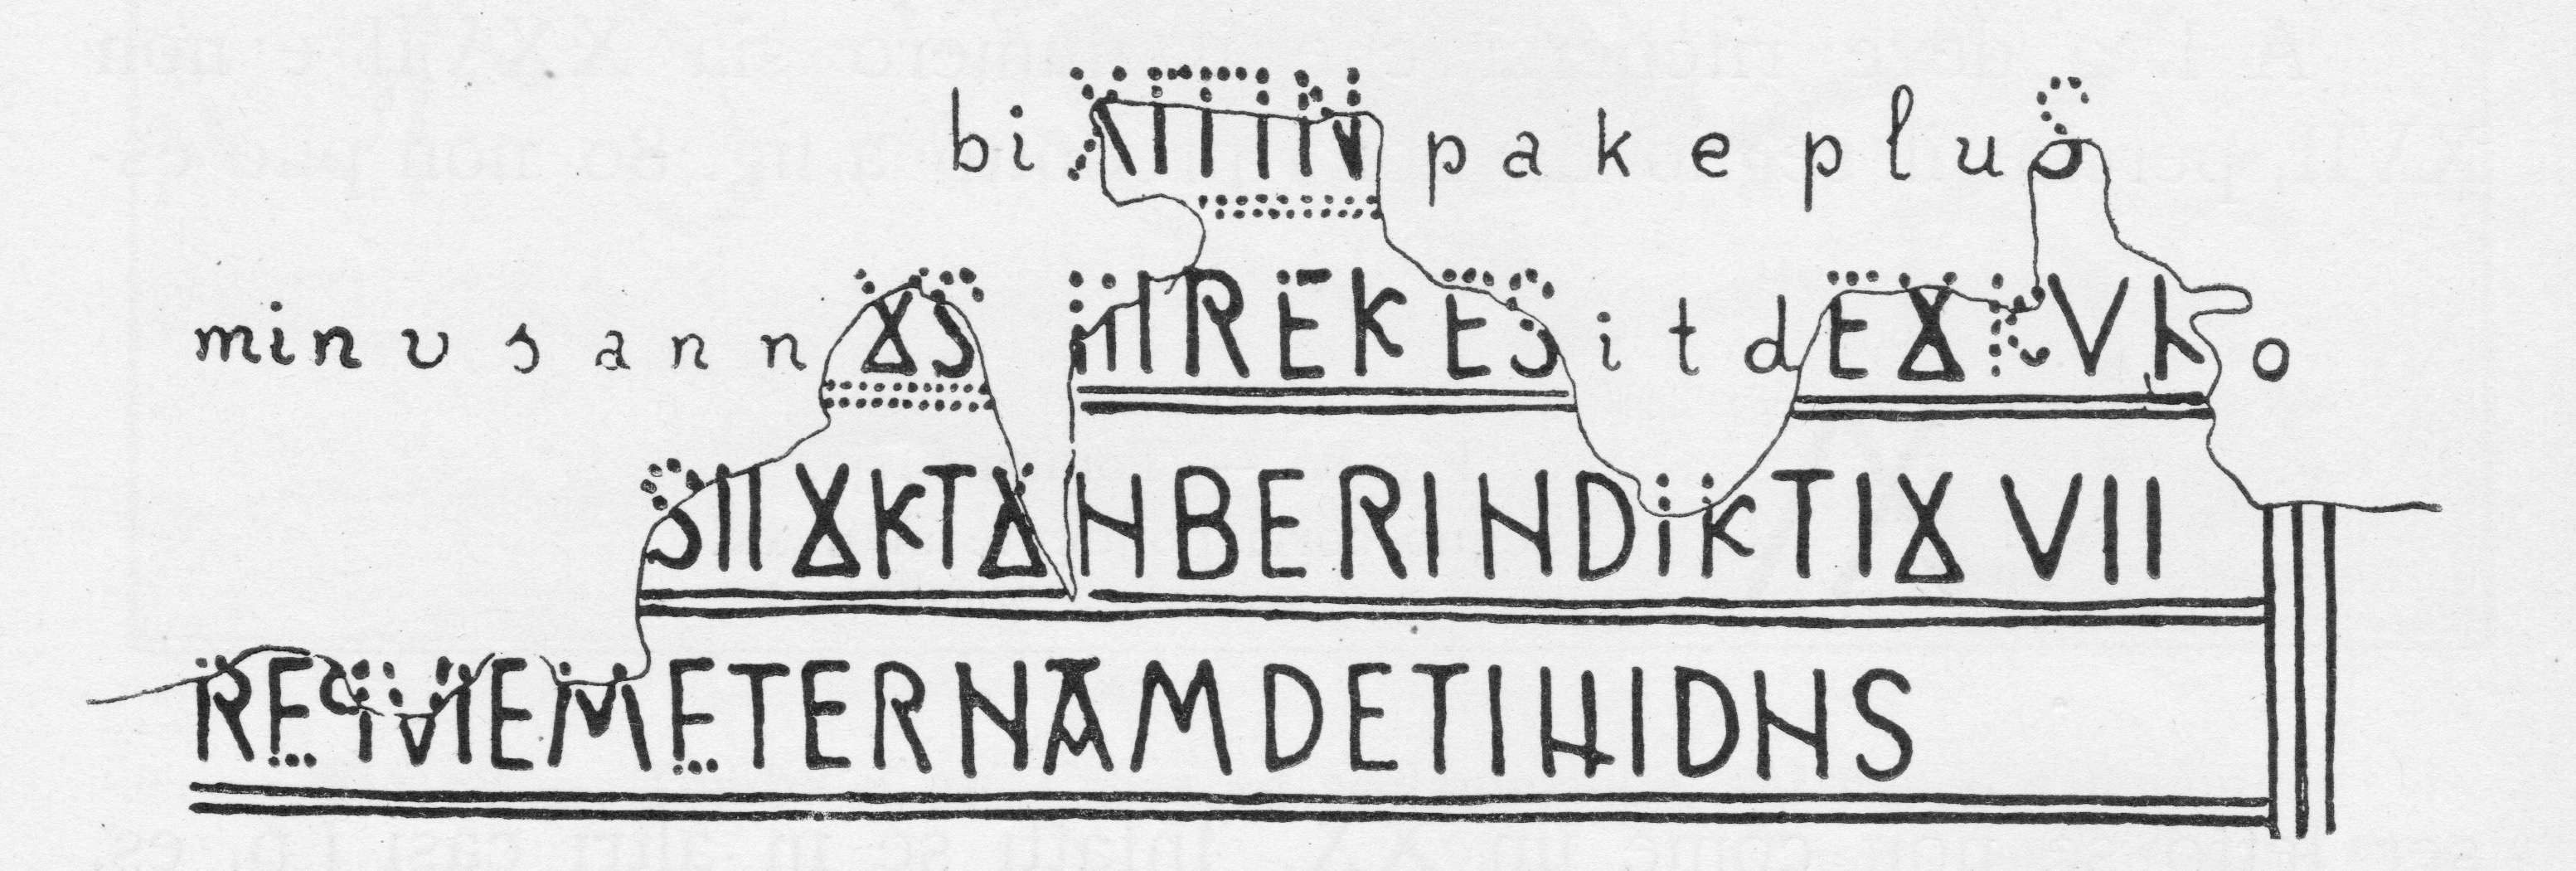 biXITIN pakepluS
minusannOS REKESitd
SIIOKTONBERINDIKTIOVII
REQVIEMETERNAMDETILLIDNS